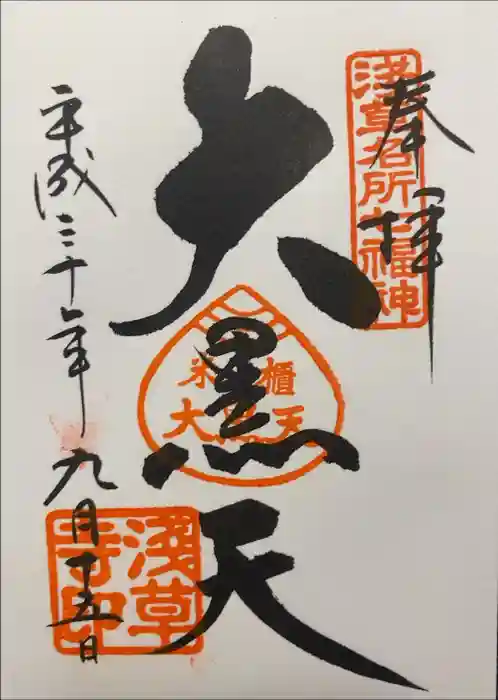 奉拝
浅草名所七福神
大黒天
米櫃
大黒天
平成三十年九月十五日
浅草寺印